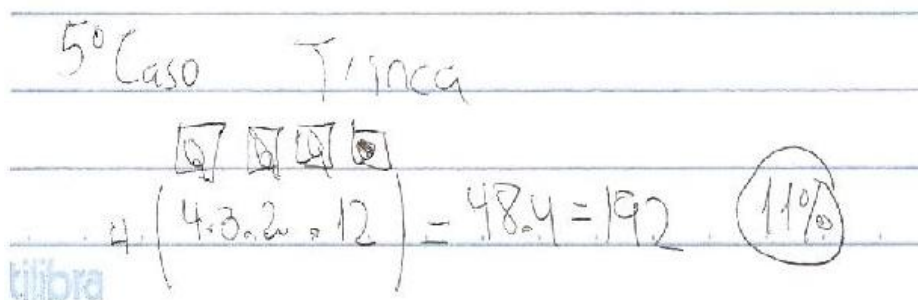 5º Caso Trinca
4.(4.3.2.12) = 48.4 = 192 11%
tilibra